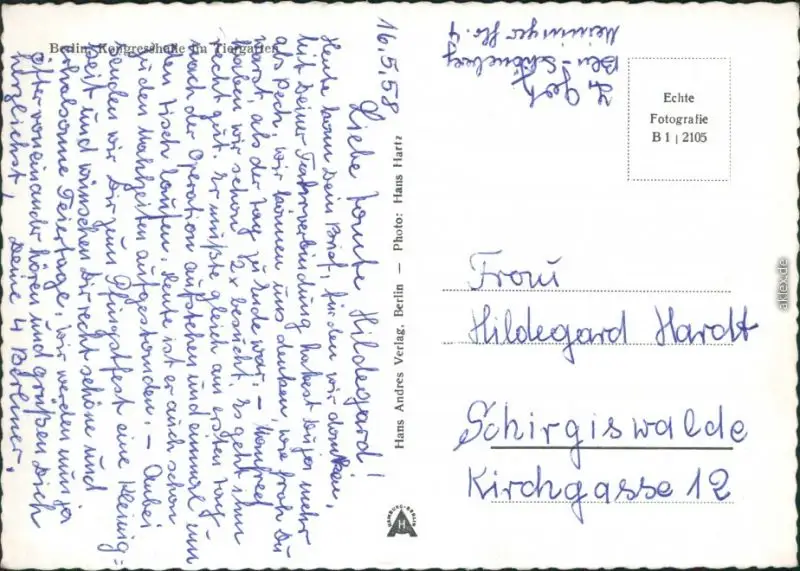 Berlin, Kongresshalle im Tiergarten
16.5.58
Liebe Tante Hildegard!
Heute kam Dein Brief, für den wir danken,
mit Deiner Fahrverbindung hattest Du ja mehr
als Pech, wir können uns denken, wie froh Du
warst, als der Tag zu Ende war. – Manfred
haben wir schon 2x besucht. Es geht ihm
recht gut. Er mußte gleich am ersten Tag
nach der Operation aufstehen und einmal um
den Tisch laufen. Heute ist er auch schon
zu den Mahlzeiten aufgestanden. – Anbei
senden wir Dir zum Pfingstfest eine Kleinig=
keit und wünschen Dir recht schöne und
erholsame Feiertage, wir werden nun ja
öfter voneinander hören und grüßen Dich
herzlichst, Deine 4 Berliner.
Hans Andres Verlag, Berlin — Photo: Hans Hartz
HAMBURG-BERLIN
H
Bln-Schöneberg
Meininger Str. 4
Echte
Fotografie
B 1 | 2105
Frau
Hildegard Hardt
Schirgiswalde
Kirchgasse 12
aklex.de